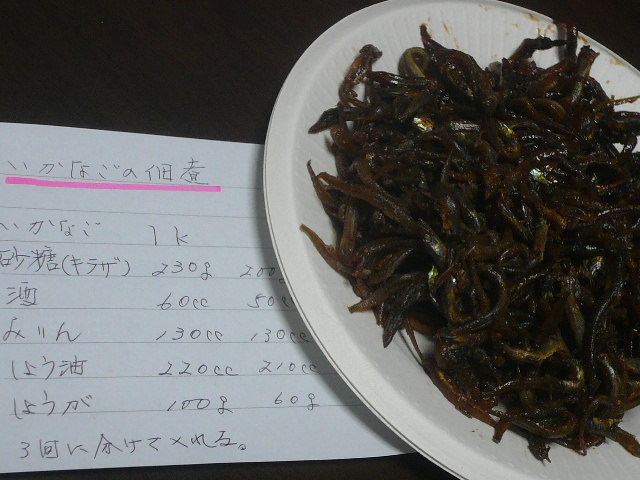 いかなごの佃煮
いかなご 1k
砂糖(キラザ) 230g 200
酒 60cc 50cc
みりん 130cc 130cc
しょう油 220cc 210cc
しょうが 100g 60g
3回に分けて入れる。